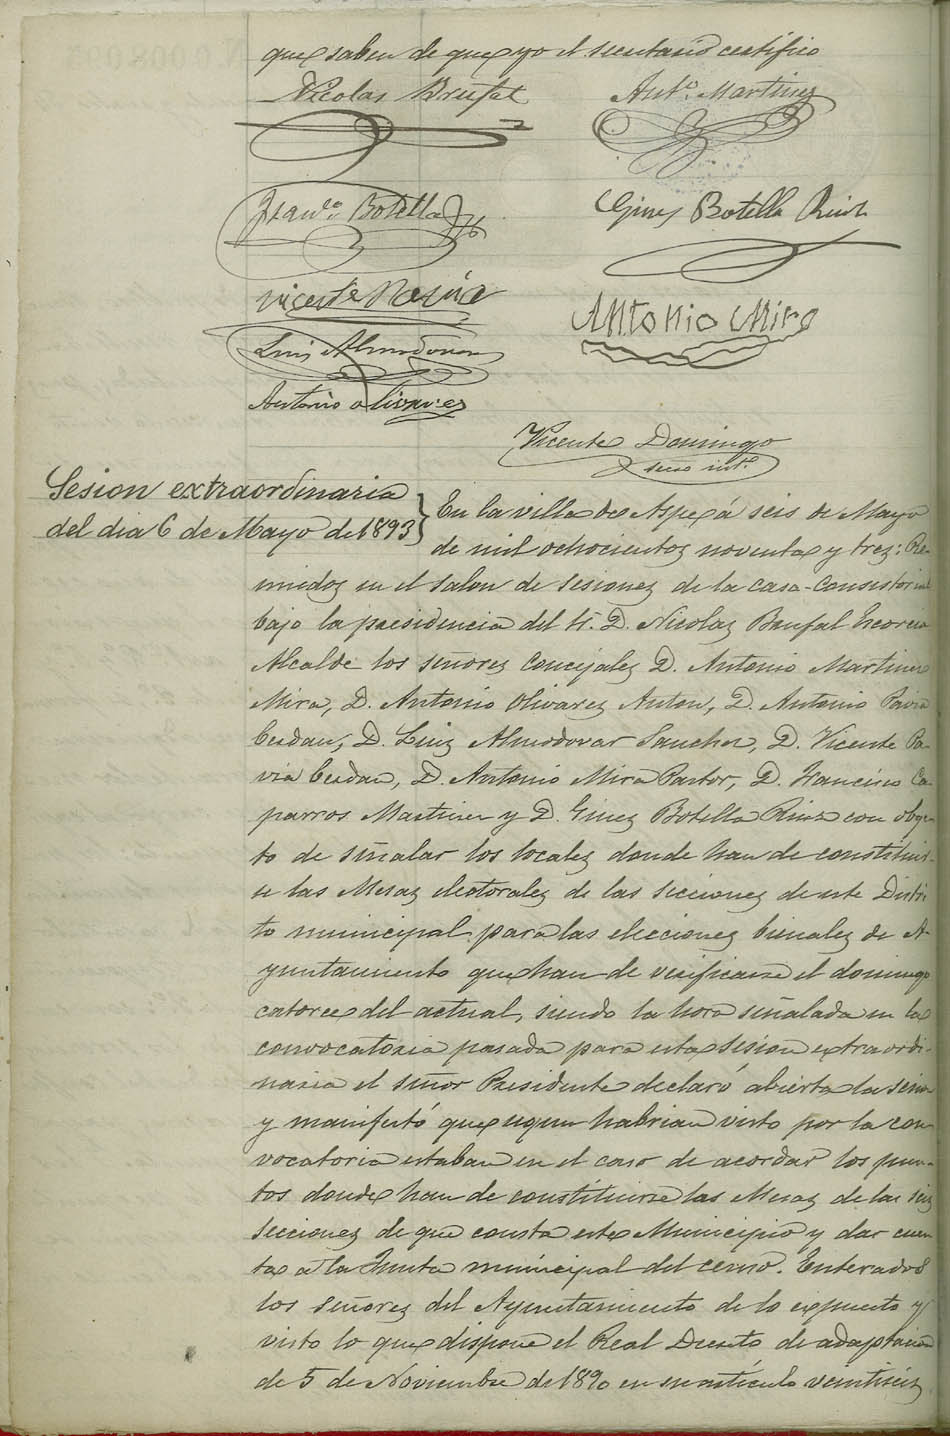 que saben de que yo el secretario certifico
Nicolas Brufal
Antº. Martinez
Franco. Botella
Gines Botella Ruiz
Vicente Pavia
Antonio Miro
Luis Almodovar
Antonio Olivares
Vicente Domingo
secº intº
Sesion extraordinaria
del dia 6 de Mayo de 1893
En la villa de Aspe á seis de Mayo
de mil ochocientos noventa y tres: Re-
unidos en el salon de sesiones de la casa-Consistorial
bajo la presidencia del Sr. D. Nicolas Brufal Escorcia
Alcalde los señores Concejales D. Antonio Martinez
Mira, D. Antonio Olivares Anton, D. Antonio Pavia
Cerdan, D. Luis Almodovar Sanchez, D. Vicente Pa-
via Cerdan, D. Antonio Mira Pastor, D. Francisco Ca-
parros Martinez y D. Gines Botella Ruiz con obge-
to de señalar los locales donde han de constituir-
se las Mesas electorales de las secciones de este Distri-
to municipal para las elecciones bienales de A-
yuntamiento que han de verificarse el domingo
catorce del actual, siendo la hora señalada en la
convocatoria pasada para esta sesion extraordi-
naria el señor Presidente declaró abierta la sesion
y manifestó que segun habrian visto por la con-
vocatoria estaban en el caso de acordar los pun-
tos donde han de constituirse las Mesas de las seis
secciones de que consta este Municipio y dar cuen-
ta a la Junta municipal del censo. Enterados
los señores del Ayuntamiento de lo expuesto y
visto lo que dispone el Real Decreto de adaptacion
de 5 de Noviembre de 1890 en su artículo veintiseis